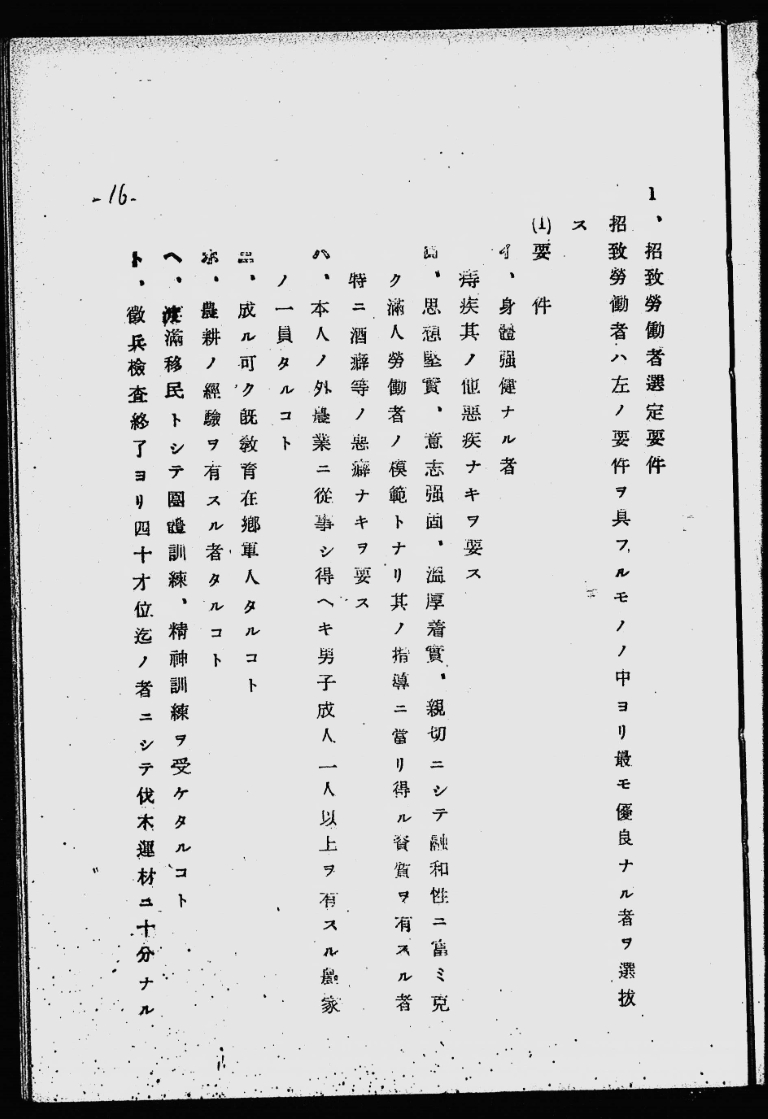 1、招致勞働者選定要件
招致勞働者ハ左ノ要件ヲ具フルモノノ中ヨリ最モ優良ナル者ヲ選拔
ス
(1)要件
イ、身體强健ナル者
痔疾其ノ他惡疾ナキヲ要ス
ロ、思想堅實、意志强固、溫厚着實、親切ニシテ融和性ニ富ミ克
ク滿人勞働者ノ模範トナリ其ノ指導ニ當リ得ル資質ヲ有スル者
特ニ酒癖等ノ惡癖ナキヲ要ス
ハ、本人ノ外農業ニ從事シ得ヘキ男子成人一人以上ヲ有スル農家
ノ一員タルコト
ニ、成ル可ク既敎育在鄕軍人タルコト
ホ、農耕ノ經驗ヲ有スル者タルコト
ヘ、渡滿移民トシテ團體訓練、精神訓練ヲ受ケタルコト
ト、徵兵檢査終了ヨリ四十才位迄ノ者ニシテ伐木運材ニ十分ナル
-16-